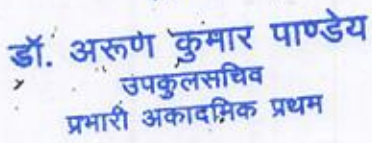 डॉ. अरूण कुमार पाण्डेय
उपकुलसचिव
प्रभारी अकादमिक प्रथम